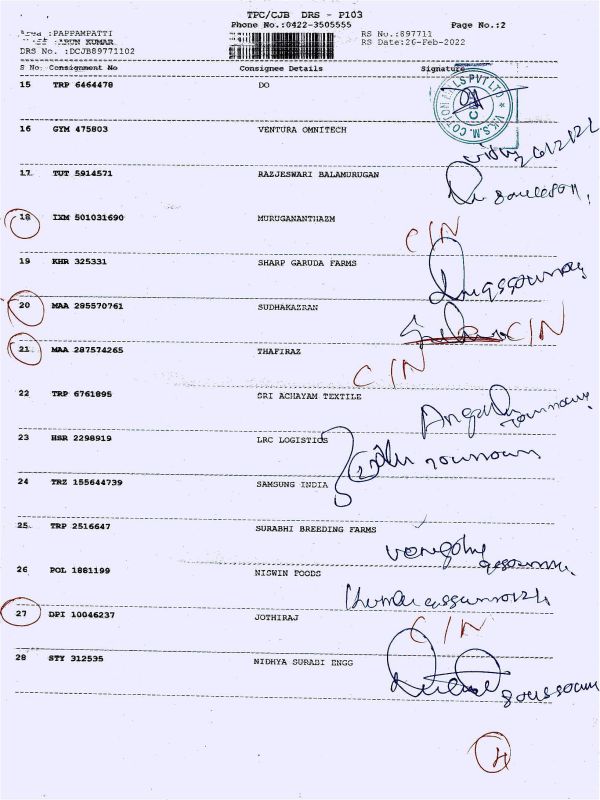 TPC/CJB DRS - P103
Phone No.:0422-3505555 Page No.:2
:PAPPAMPATTI RS No.:897711
ARUN KUMAR RS Date:26-Feb-2022
DRS No. :DCJB89771102
S No. Consignment No Consignee Details Signature
15 TRP 6464478 DO
V.K.S.M. COTTON MILLS PVT LTD
16 GYM 475803 VENTURA OMNITECH
17 TUT 5914571 RAZJESWARI BALAMURUGAN
18 IXM 501031690 MURUGANANTHAZM C/N
19 KHR 325331 SHARP GARUDA FARMS
20 MAA 285570761 SUDHAKAZRAN C/N
21 MAA 287574265 THAFIRAZ C/N
22 TRP 6761895 SRI ACHAYAM TEXTILE
23 HSR 2298919 LRC LOGISTICS
24 TRZ 155644739 SAMSUNG INDIA
25 TRP 2516647 SURABHI BREEDING FARMS
26 POL 1881199 NISWIN FOODS
27 DPI 10046237 JOTHIRAJ C/N
28 STY 312535 NIDHYA SURABI ENGG
4